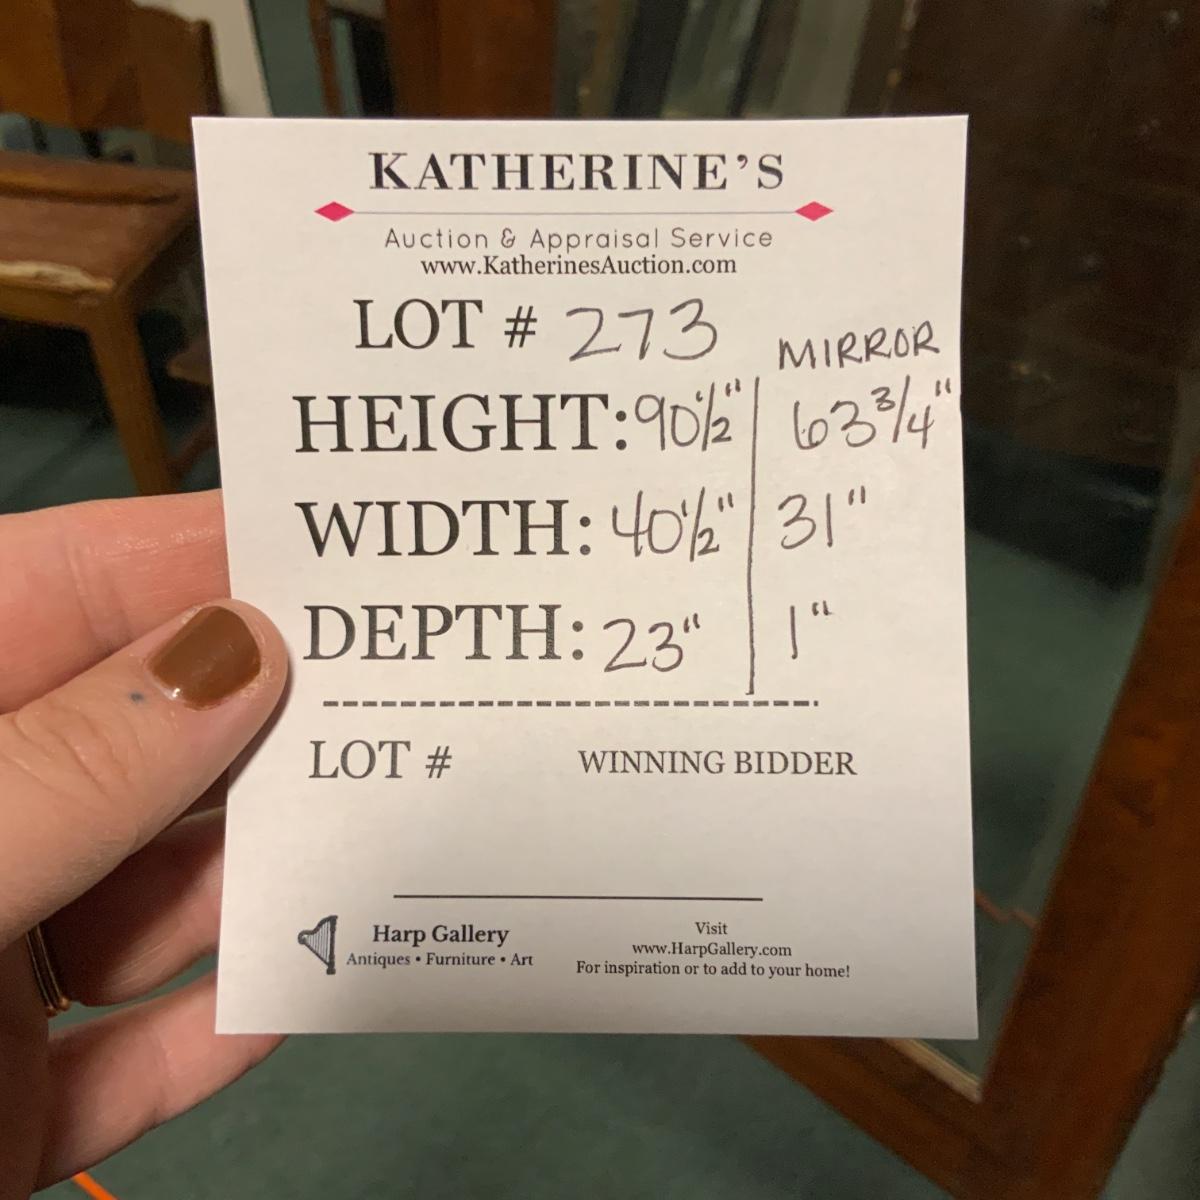 KATHERINE'S
Auction & Appraisal Service
www.KatherinesAuction.com
LOT # 273
MIRROR
HEIGHT: 90 1/2" 63 3/4"
WIDTH: 40 1/2" 31"
DEPTH: 23" 1"
LOT # WINNING BIDDER
Harp Gallery
Antiques • Furniture • Art
Visit
www.HarpGallery.com
For inspiration or to add to your home!